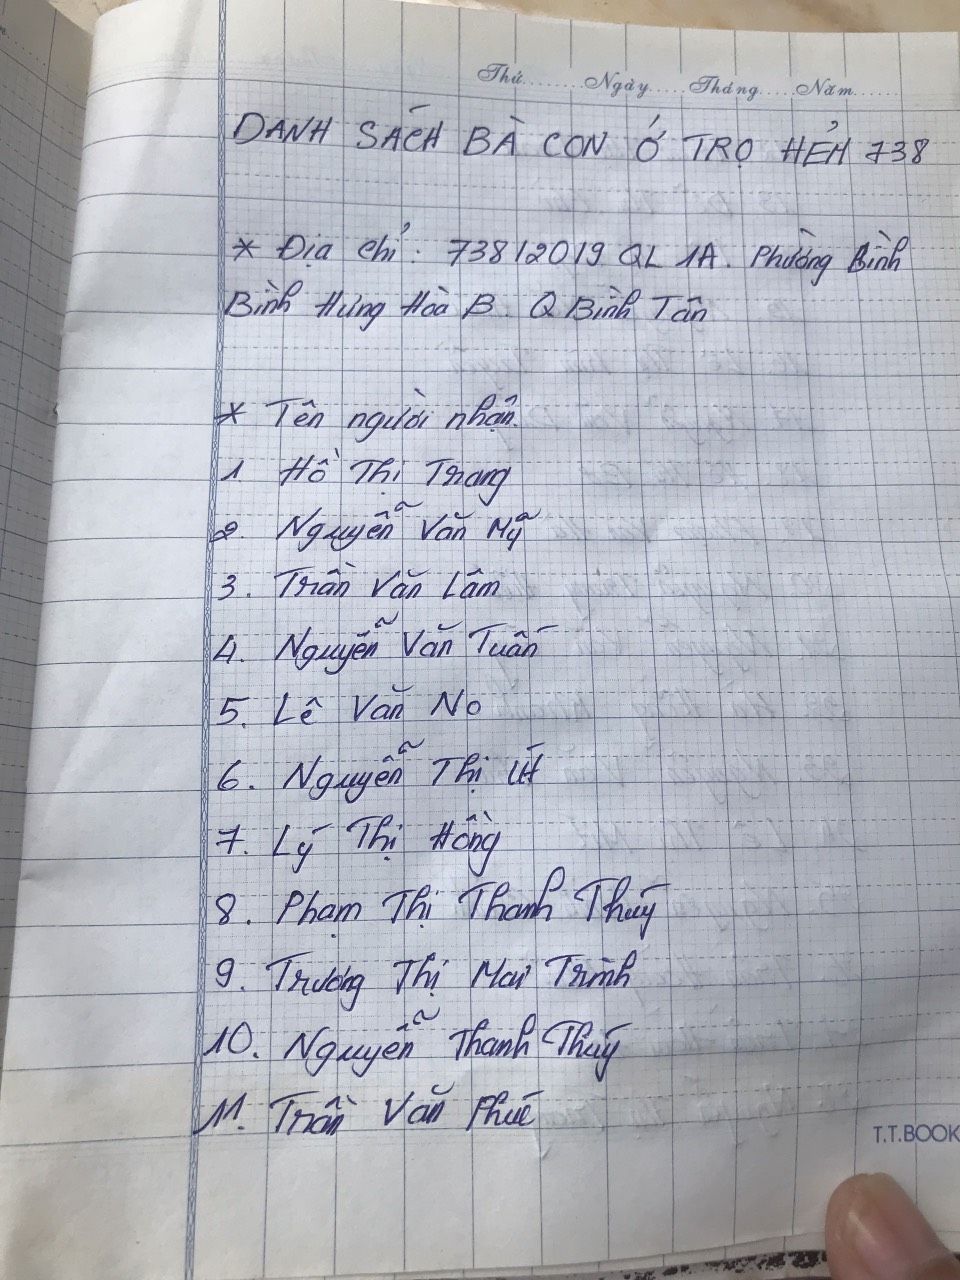 Thứ........Ngày.....Tháng.....Năm......
DANH SÁCH BÀ CON Ở TRỌ HẺM 738
* Địa chỉ: 738/2019 QL 1A. Phường Bình
Bình Hưng Hòa B. Q Bình Tân
* Tên người nhận.
1. Hồ Thị Trang
2. Nguyễn Văn Mỹ
3. Trần Văn Lâm
4. Nguyễn Văn Tuấn
5. Lê Văn No
6. Nguyễn Thị Út
7. Lý Thị Hồng
8. Phạm Thị Thanh Thuý
9. Trương Thị Mai Trinh
10. Nguyễn Thanh Thuý
11. Trần Văn Phúc
T.T.BOOK